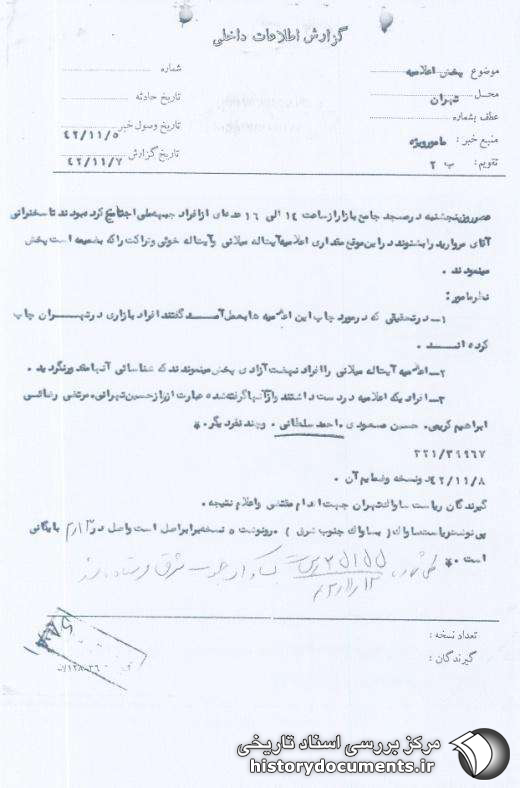 گزارش اطلاعات داخلی
موضوع پخش اعلامیه
محل تهران
عطف بشماره
منبع خبر : مامور ویژه
تقویم : ب ۲
شماره
تاریخ حادثه
تاریخ وصول خبر ۴۲/۱۱/۵
تاریخ گزارش ۴۲/۱۱/۷
عصر روز پنجشنبه در مسجد جامع بازار از ساعت ۱۴ الی ۱۶ عده‌ای از افراد جبهه ملی اجتماع کرده بودند تا سخنرانی
آقای مروارید را بشنوند در این موقع مقداری اعلامیه آیت‌اله میلانی و آیت‌اله خوئی و تراکت را که بضمیمه است پخش
مینمودند .
نظر مامور :
۱- در تحقیقی که در مورد چاپ این اعلامیه ها بعمل آمد گفتند افراد بازاری در تهران چاپ
کرده اند .
۲- اعلامیه آیت‌اله میلانی را افراد نهضت آزادی پخش مینمودند که شناسائی آنها مقدور نگردید .
۳- افرادیکه اعلامیه در دست داشتند و از آنها گرفته شده عبارت از حسین تهرانی، مرتضی رضائی
ابراهیم کریمی، حسن مسعودی ، احمد سلطانی ، و چند نفر دیگر.*
۳۲۱/۳۹۹۶۷
۴۲/۱۱/۸ در دو نسخه و ضمایم آن .
گیرندگان ریاست ساواک تهران جهت اقدام مقتضی و اعلام نتیجه .
پی نوشت ریاست ساواک ( بساواک جنوب شرق ) . رونوشت ه نسخه برابر اصل است و اصل در بایگانی
است . *
تعداد نسخه :
گیرندگان :
مرکز بررسی اسناد تاریخی
historydocuments.ir